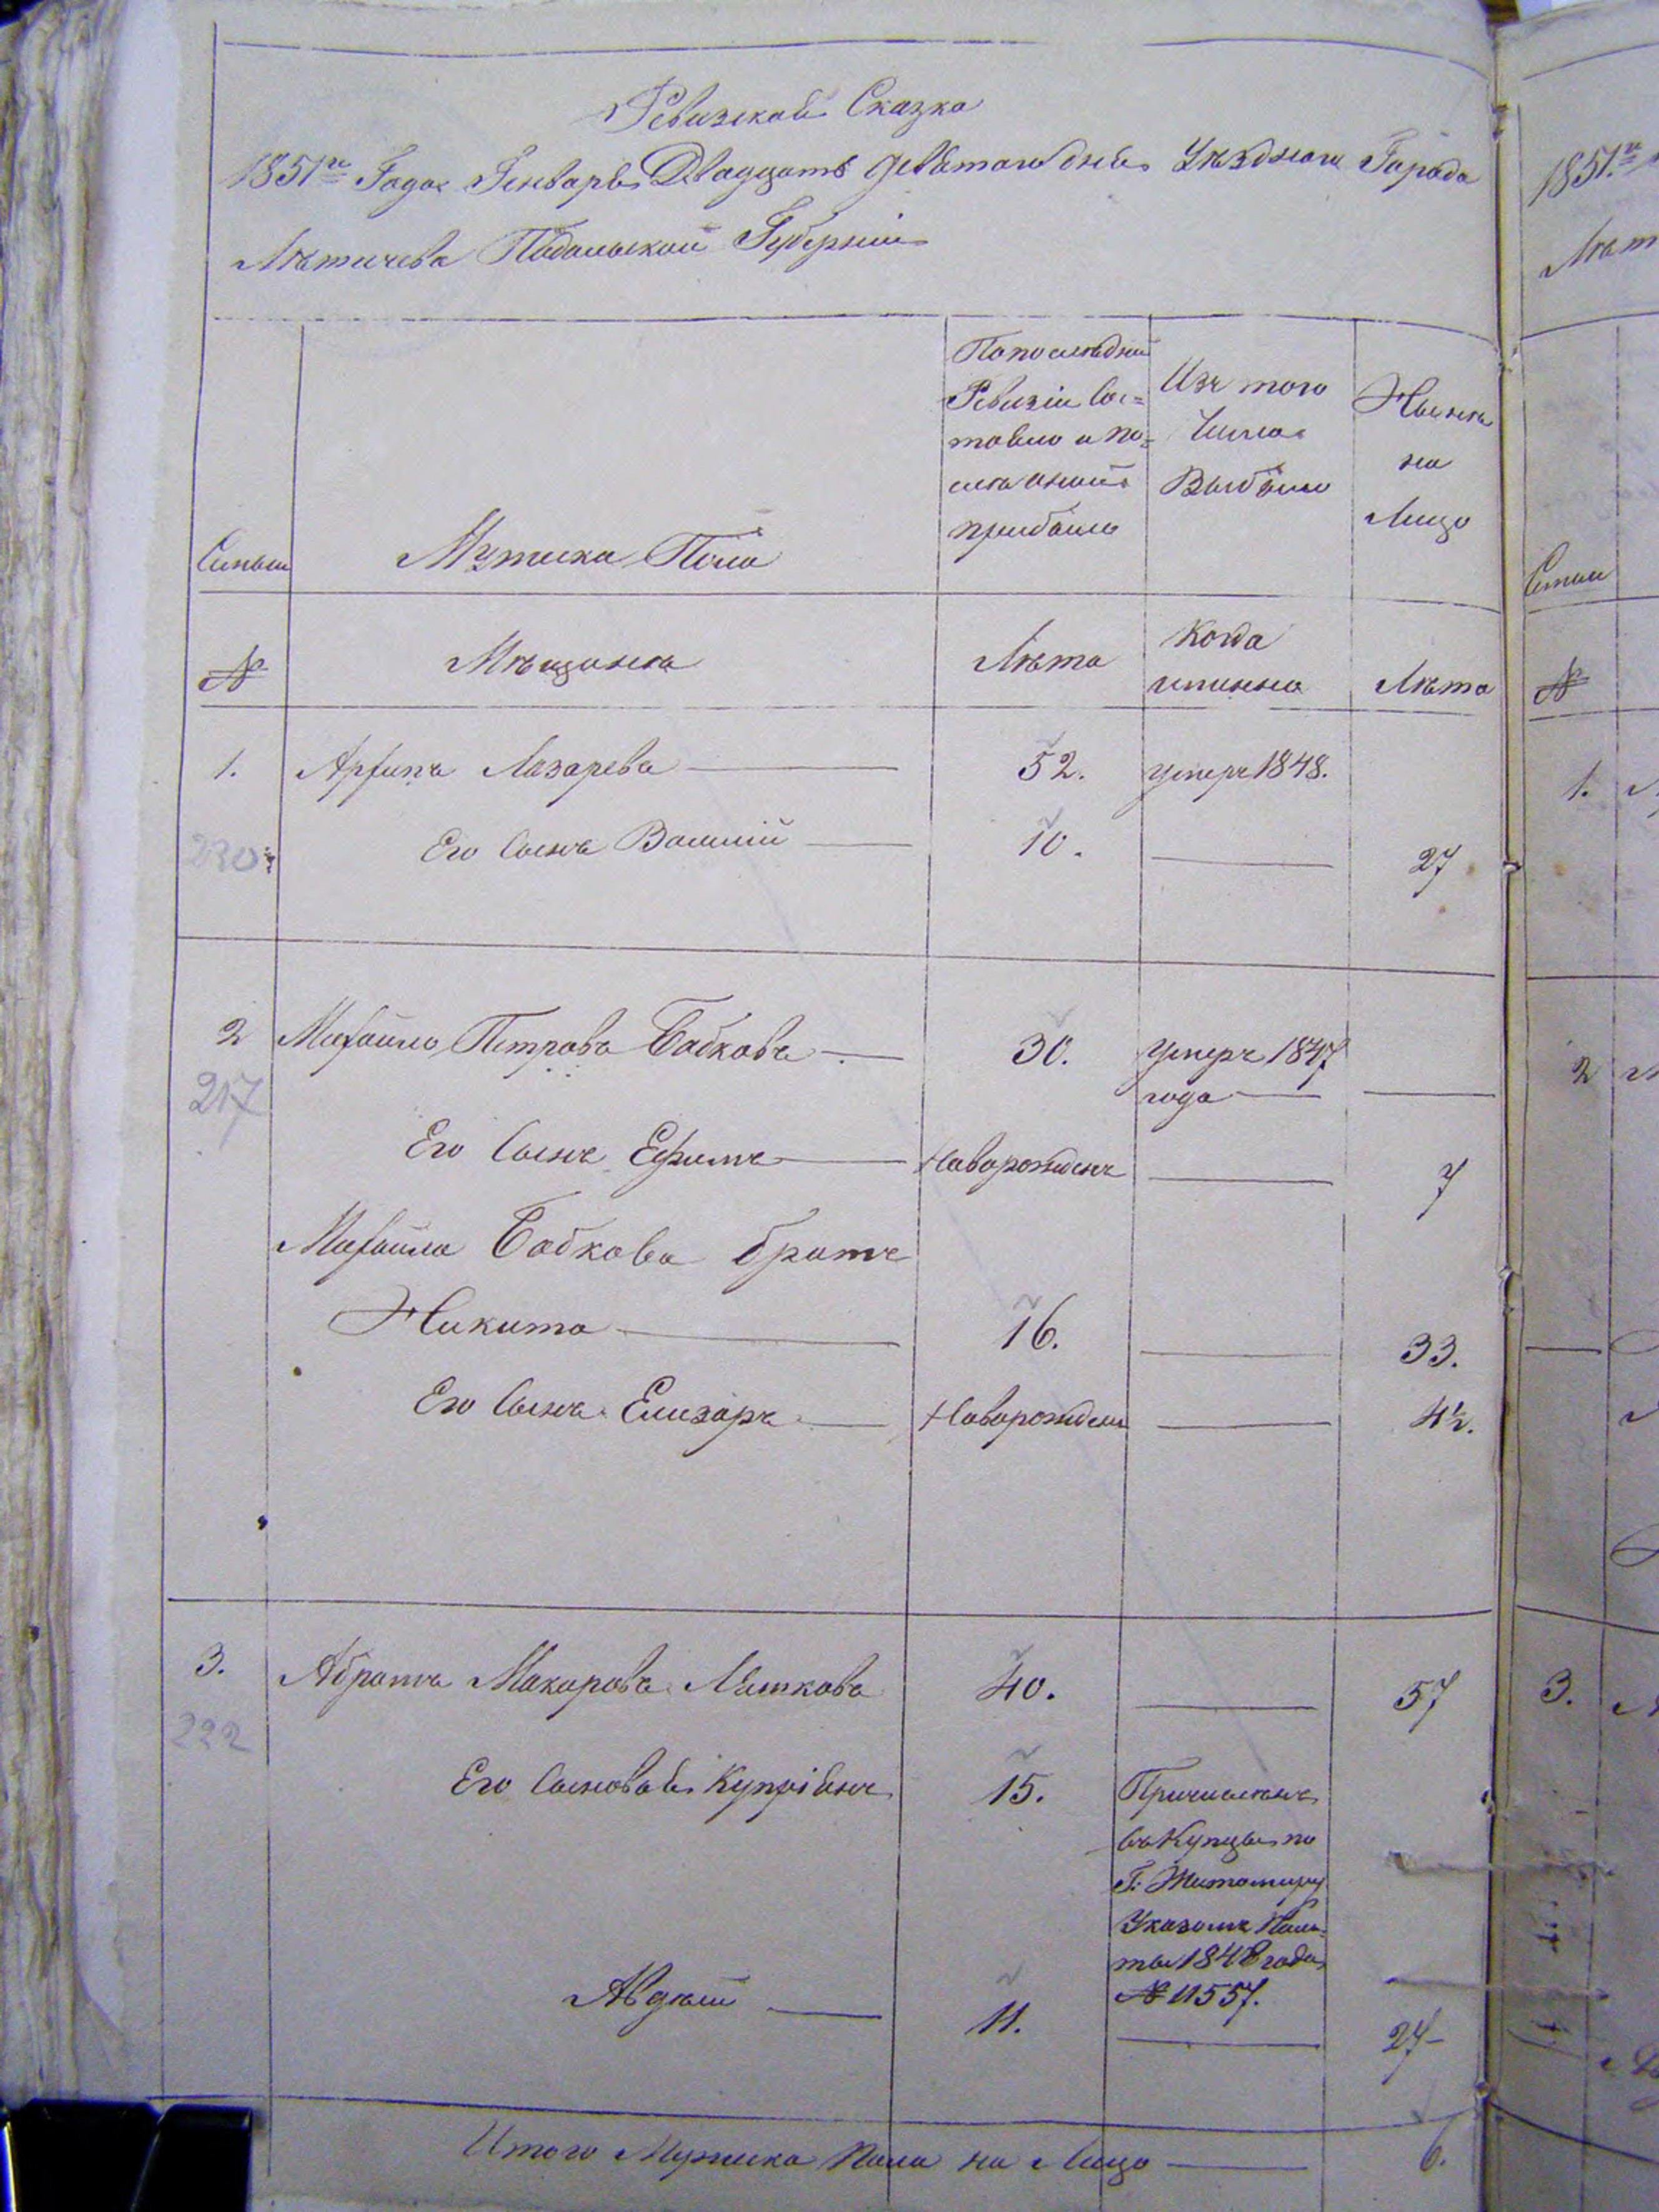 Ревизская Сказка
1851го Года Генваря Двадцать девятого дня Уѣзднаго Города
Лѣтичева Подольской Губерніи
Семьи
Мужеска Пола
По последней
Ревизіи Сос=
тояло и по=
слѣ оной
прибыло
Изъ того
Числа
Выбыло
Нынѣ
на
Лицо
№
Мѣщанѣ
Лѣта
Когда
имянно
Лѣта
1. Архипъ Лазарева 52. умеръ 1848.
230
Его Сынъ Василій 10. 27
2 Михайло Петровъ Бабковъ 30. умеръ 1847
года
217
Его Сынъ Ефимъ Новорожденъ 7
Михайла Бабкова братъ
Никита 16. 33.
Его Сынъ Елизаръ Новорожденъ 4½.
3. Абрамъ Макаровъ 40. 57
222
Его Сыновья Купріянъ 15. Причисленъ
въ Купцы по
Г: Житомиру
Указомъ Пала=
ты 1848 года
№ 11557.
Авдѣй 11. 27
Итого Мужеска Пола на Лицо 6.
1851го
Лѣт
Семьи
№
1.
2
3.